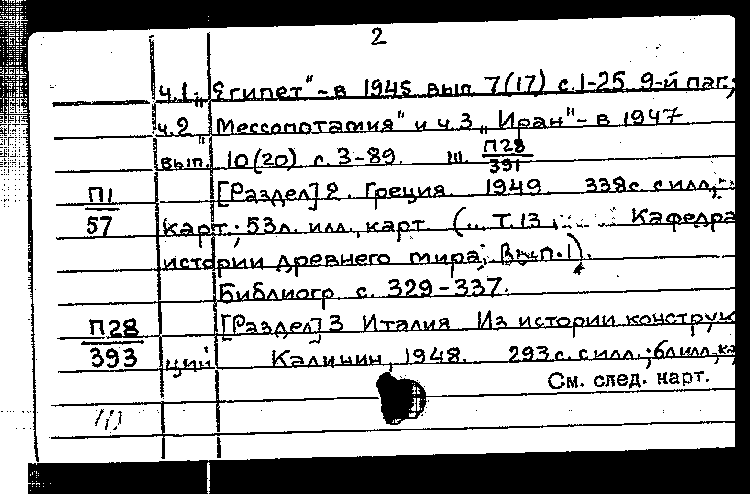 2
ч.1 „Египет" - в 1945 вып 7(17) с.1-25 9-й паг.;
ч.2 „Мессопотамия" и ч.3 „Иран" - в 1947
вып. 10(20) с. 3-89. Ш. П28/391
[Раздел] 2. Греция. 1949. 338с. с илл.,
П1/57 карт.; 53л. илл., карт. (... Т.13, Кафедра
истории древнего мира; Вып.1).
Библиогр с. 329-337.
П28/393 [Раздел] 3 Италия Из истории конструк
ций Калинин, 1948. 293с. с илл.;
См. след. карт.